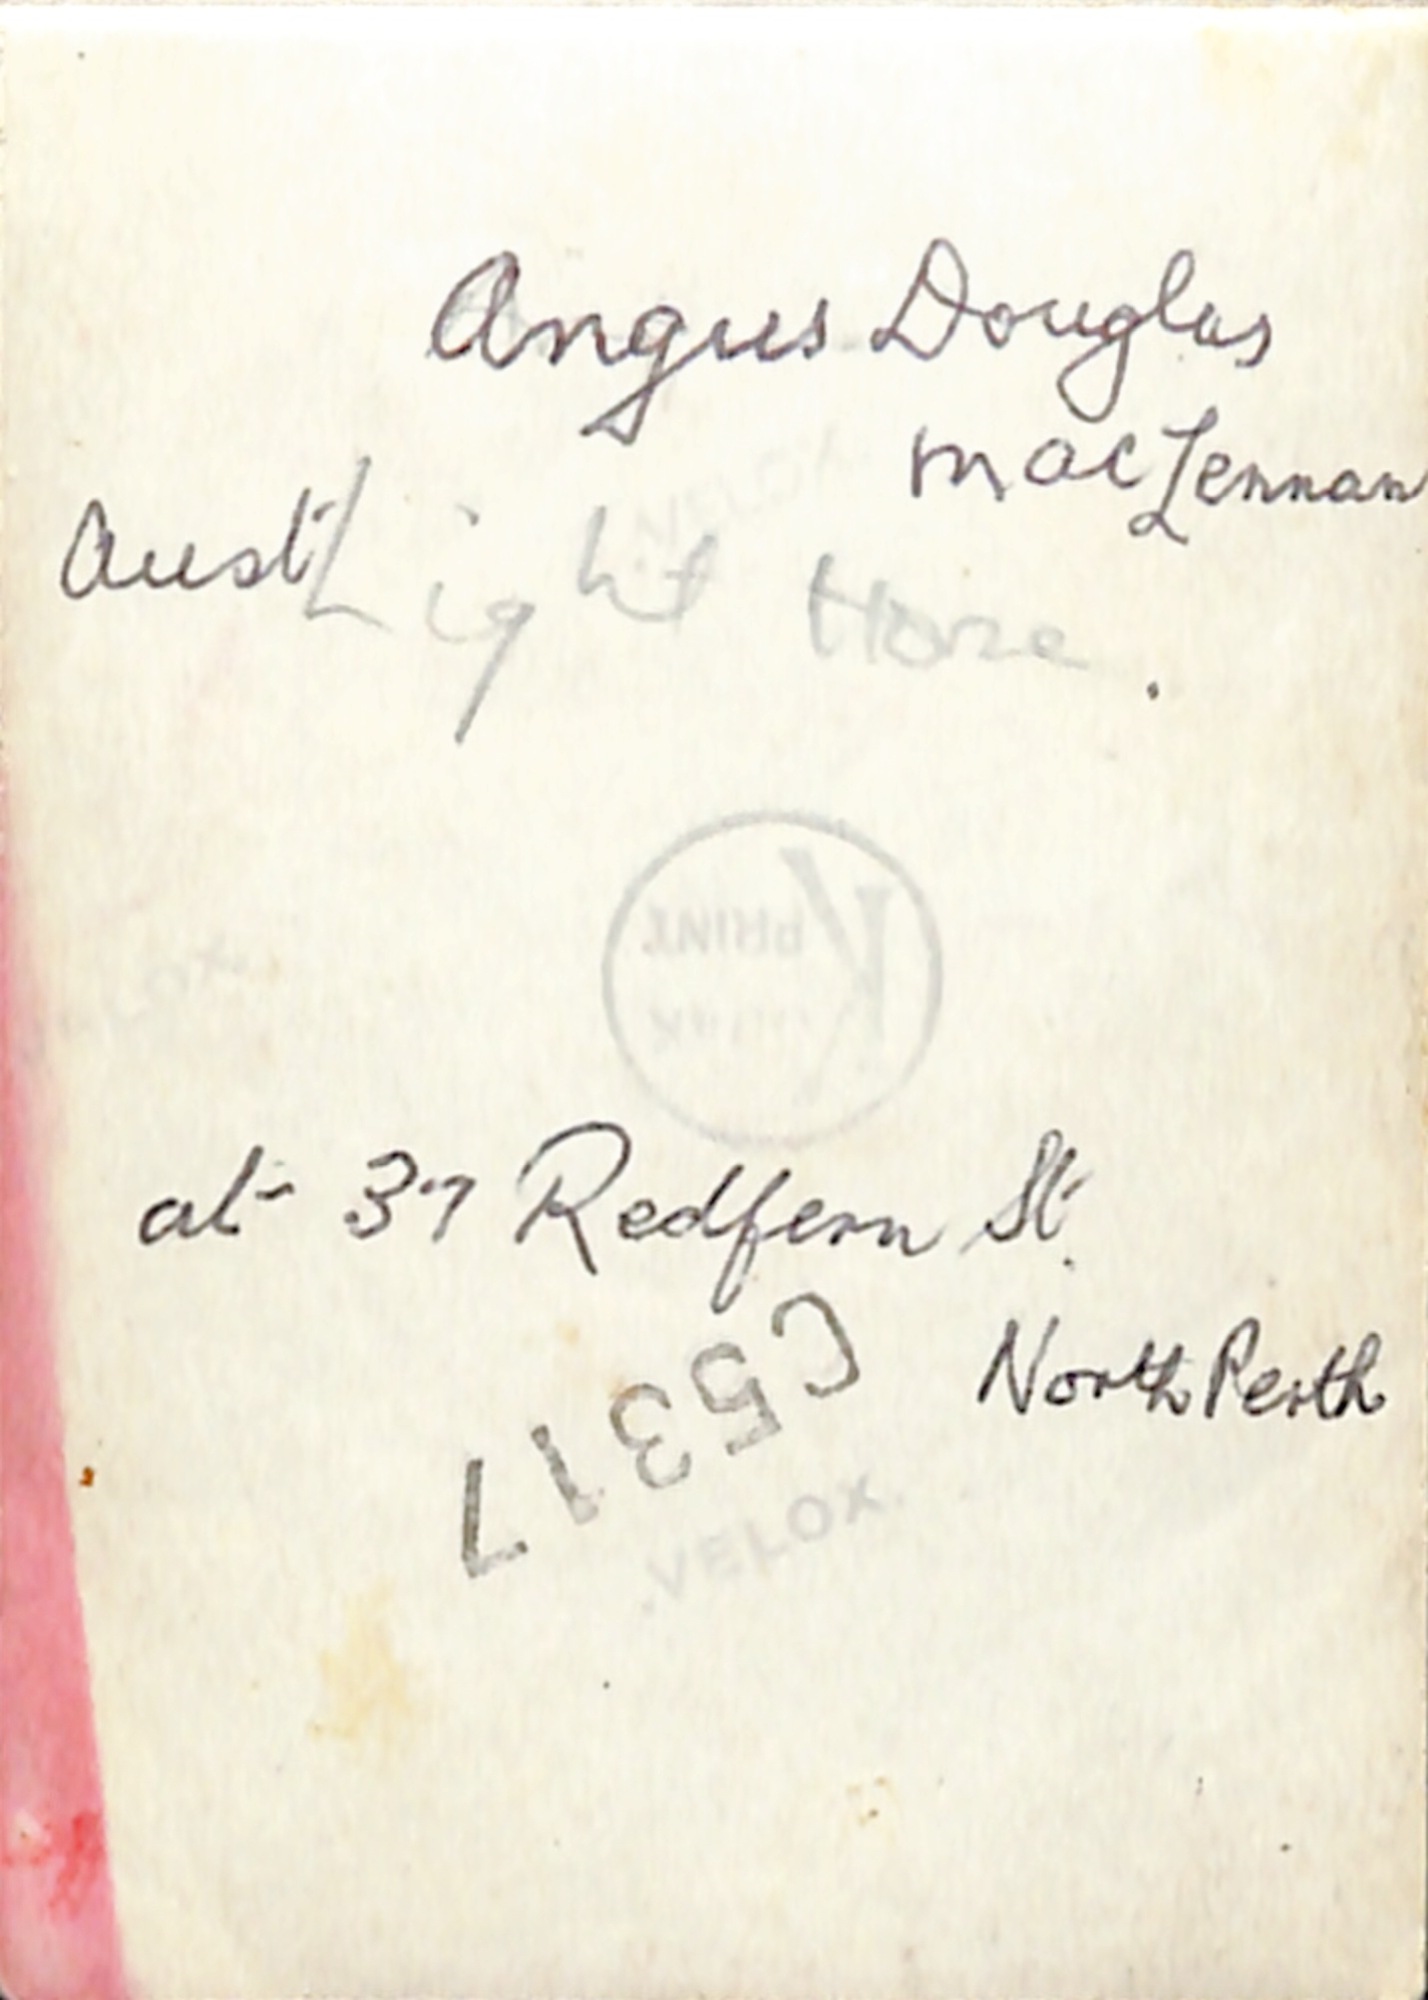 Angus Douglas
MacLennan
Aust Light Horse.
VELOX
K
PRINT
VELOX
at 37 Redfern St.
North Perth
C5317
VELOX